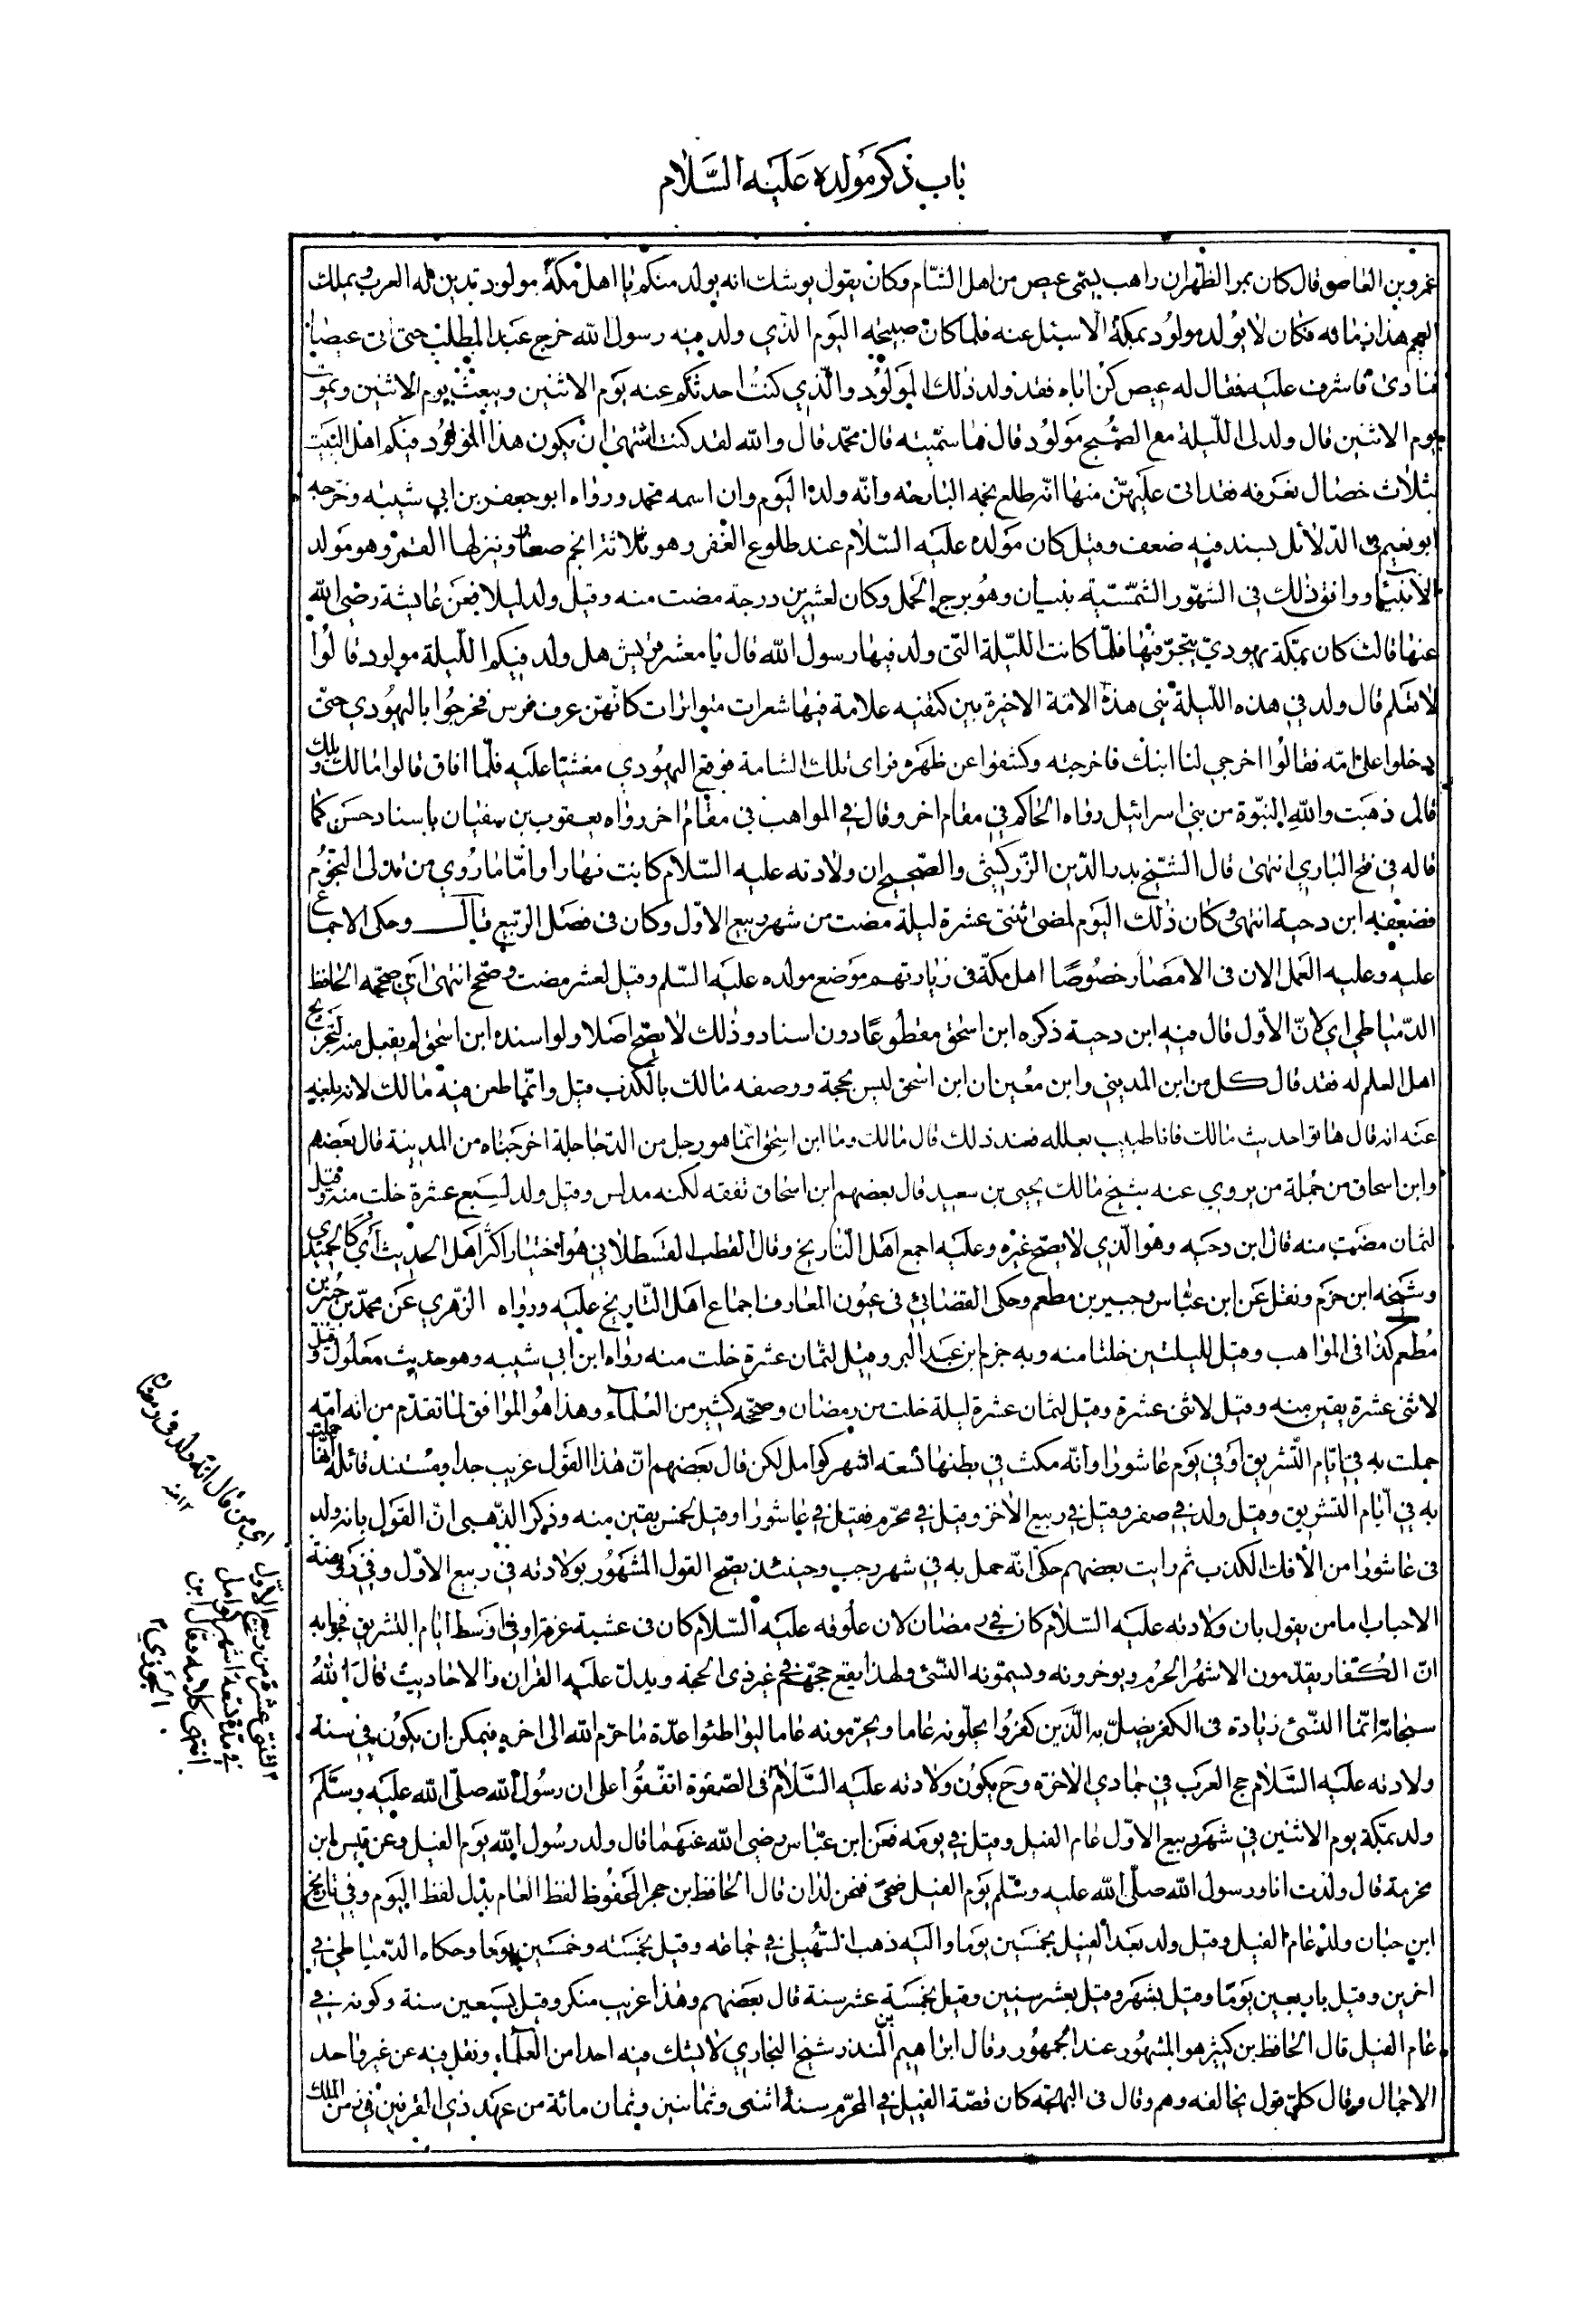 باب ذكر مولده عليه السلام
عمرو بن العاص قال كان بمر الظهران راهب يسمى عيص من اهل الشام وكان يقول يوشك انه يولد منكم يا اهل مكة مولود تدين له العرب ويملك
العجم هذا زمانه فكان لا يولد مولود بمكة الا سئل عنه فلما كان صبيحة اليوم الذي ولد فيه رسول الله خرج عبد المطلب حتى اتى عيصا
فناداه فاشرف عليه فقال له عيص كن اباه فقد ولد ذلك المولود والذي كنت احدثكم عنه يوم الاثنين ويبعث يوم الاثنين ويموت
يوم الاثنين قال ولد لى الليلة مع الصبح مولود قال فما سميته قال محمد قال والله لقد كنت اشتهى ان يكون هذا المولود فيكم اهل البيت
بثلاث خصال نعرفه فقد اتى عليهن منها انه طلع نجمه البارحة وانه ولد اليوم وان اسمه محمد ورواه ابو جعفر بن ابي شيبه وخرجه
ابو نعيم فى الدلائل بسند فيه ضعف وقيل كان مولده عليه السلام عند طلوع الغفر وهو ثلاثة انجم صغار ينزلها القمر وهو مولد
الانبيا ووافق ذلك فى الشهور الشمسية نيسان وهو برج الحمل وكان لعشرين درجة مضت منه وقيل ولد ليلا فعن عايشة رضي الله
عنها قالت كان بمكة يهودي يتجر فيها فلما كانت الليلة التى ولد فيها رسول الله قال يا معشر قريش هل ولد فيكم الليلة مولود قالوا
لا نعلم قال ولد في هذه الليلة نبي هذه الامة الاخيرة بين كتفيه علامة فيها شعرات متواترات كانهن عرف فرس فخرجوا باليهودي حتى
دخلوا على امه فقالوا اخرجي لنا ابنك فاخرجته وكشفوا عن ظهره فراى تلك الشامة فوقع اليهودي مغشيا عليه فلما افاق قالوا مالك ويلك
قال ذهبت والله النبوة من بني اسرائيل رواه الحاكم في مقام اخر وقال في المواهب فى مقام اخر رواه يعقوب بن سفيان باسناد حسن كما
قاله فى فتح الباري انتهى قال الشيخ بدر الدين الزركشي والصحيح ان ولادته عليه السلام كانت نهارا واما ما روي من تدلى النجوم
فضعفه ابن دحية انتهى وكان ذلك اليوم لمضى اثنتى عشرة ليلة مضت من شهر ربيع الاول وكان فى فصل الربيع قال وحكى الاجماع
عليه وعليه العمل الان فى الامصار خصوصا اهل مكة فى زيارتهم موضع مولده عليه السلم وقيل لعشر مضت وصحح انتهى اى صححه الحافظ
الدمياطي اي لان الاول قال فيه ابن دحية ذكره ابن اسحق مقطوعا دون اسناد وذلك لا يصح اصلا ولو اسنده ابن اسحق لم يقبل منه لتجريح
اهل العلم له فقد قال كل من ابن المديني وابن معين ان ابن اسحق ليس بحجة ووصفه مالك بالكذب قيل وانما طعن فيه مالك لانه بلغه
عنه انه قال هاتوا حديث مالك فانا طبيب بعلله فعند ذلك قال مالك وما ابن اسحق انما هو رجل من الدجاجلة اخرجناه من المدينة قال بعضهم
وابن اسحاق من جملة من يروي عنه شيخ مالك يحيى بن سعيد قال بعضهم ابن اسحاق ثقة لكنه مدلس وقيل ولد لسبع عشرة خلت منه وقيل
لثمان مضت منه قال ابن دحيه وهو الذي لا يصح غيره وعليه اجمع اهل التاريخ وقال القطب القسطلاني هو اختيار اكثر اهل الحديث اي كالحميدي
وشيخه ابن حزم ونقل عن ابن عباس وجبير بن مطعم وحكى القضائي فى عيون المعارف اجماع اهل التاريخ عليه ورواه الزهري عن محمد بن جبير بن
مطعم كذا فى المواهب وقيل لليلتين خلتا منه وبه جزم ابن عبد البر وقيل لثمان عشرة خلت منه رواه ابن ابي شيبه وهو حديث معلول وقيل
لاثنى عشرة بقين منه وقيل لاثنى عشرة وقيل لثمان عشرة ليلة خلت من رمضان وصححه كثير من العلماء وهذا هو الموافق لما تقدم من انه امه
حملت به في ايام التشريق او في يوم عاشورا وانه مكث في بطنها تسعة اشهر كوامل لكن قال بعضهم ان هذا القول غريب جدا ومستند قائله انها حملت
به في ايام التشريق وقيل ولد في صفر وقيل في ربيع الاخر وقيل في محرم فقيل في عاشورا وقيل لخمس بقين منه وذكر الذهبى ان القول بانه ولد
فى عاشورا من الافك الكذب ثم رايت بعضهم حكى انه حمل به في شهر رجب وحينئذ يصح القول المشهور بولادته فى ربيع الاول وفي روضة
الاحباب اما من يقول بان ولادته عليه السلام كان في رمضان لان علوقه عليه السلام كان فى عشية عرفة او فى اوسط ايام التشريق فجوابه
ان الكفار يقدمون الاشهر الحرم ويوخرونه ويسمونه النسئ ولهذا يقع حجهم في غير ذى الحجة ويدل عليه القران والاحاديث قال الله
سبحانه انما النسئ زيادة فى الكفر يضل به الذين كفروا يحلونه عاما ويحرمونه عاما ليواطئوا عدة ما حرم الله الى اخره فيمكن ان يكون في سنة
ولادته عليه السلام حج العرب في جمادي الاخره وح يكون ولادته عليه السلام فى الصفوة اتفقوا على ان رسول الله صلى الله عليه وسلم
ولد بمكة يوم الاثنين في شهر ربيع الاول عام الفيل وقيل في يومه فعن ابن عباس رضى الله عنهما قال ولد رسول الله يوم الفيل وعن قيس ابن
مخرمة قال ولدت انا ورسول الله صلى الله عليه وسلم يوم الفيل ضحى فنحن لدان قال الحافظ بن حجر المحفوظ لفظ العام بدل لفظ اليوم وفي تاريخ
ابن حبان ولد عام الفيل وقيل ولد بعد الفيل بخمسين يوما واليه ذهب السهيلي في جماعه وقيل بخمسة وخمسين يوما وحكاه الدمياطي في
اخرين وقيل باربعين يوما وقيل بشهر وقيل بعشر سنين وقيل بخمسة عشر سنة قال بعضهم وهذا غريب منكر وقيل بسبعين سنة وكونه في
عام الفيل قال الحافظ بن كثير هو المشهور عند الجمهور وقال ابراهيم بن المنذر شيخ البخاري لا يشك فيه احد من العلماء ونقل فيه عن غير واحد
الاجمال وقال كل قول يخالفه وهم وقال فى البهجة كان قصة الفيل في المحرم سنة اثنى وثمانين وثمان مائة من عهد ذي القرنين في زمن الملك
اي من قال انه ولد فى رمضان
١٢ منه
اثنتى عشرة من ربيع الاول
في مدة تسعة اشهر كوامل
انتهى كلامه وقال ابن
الجوزي